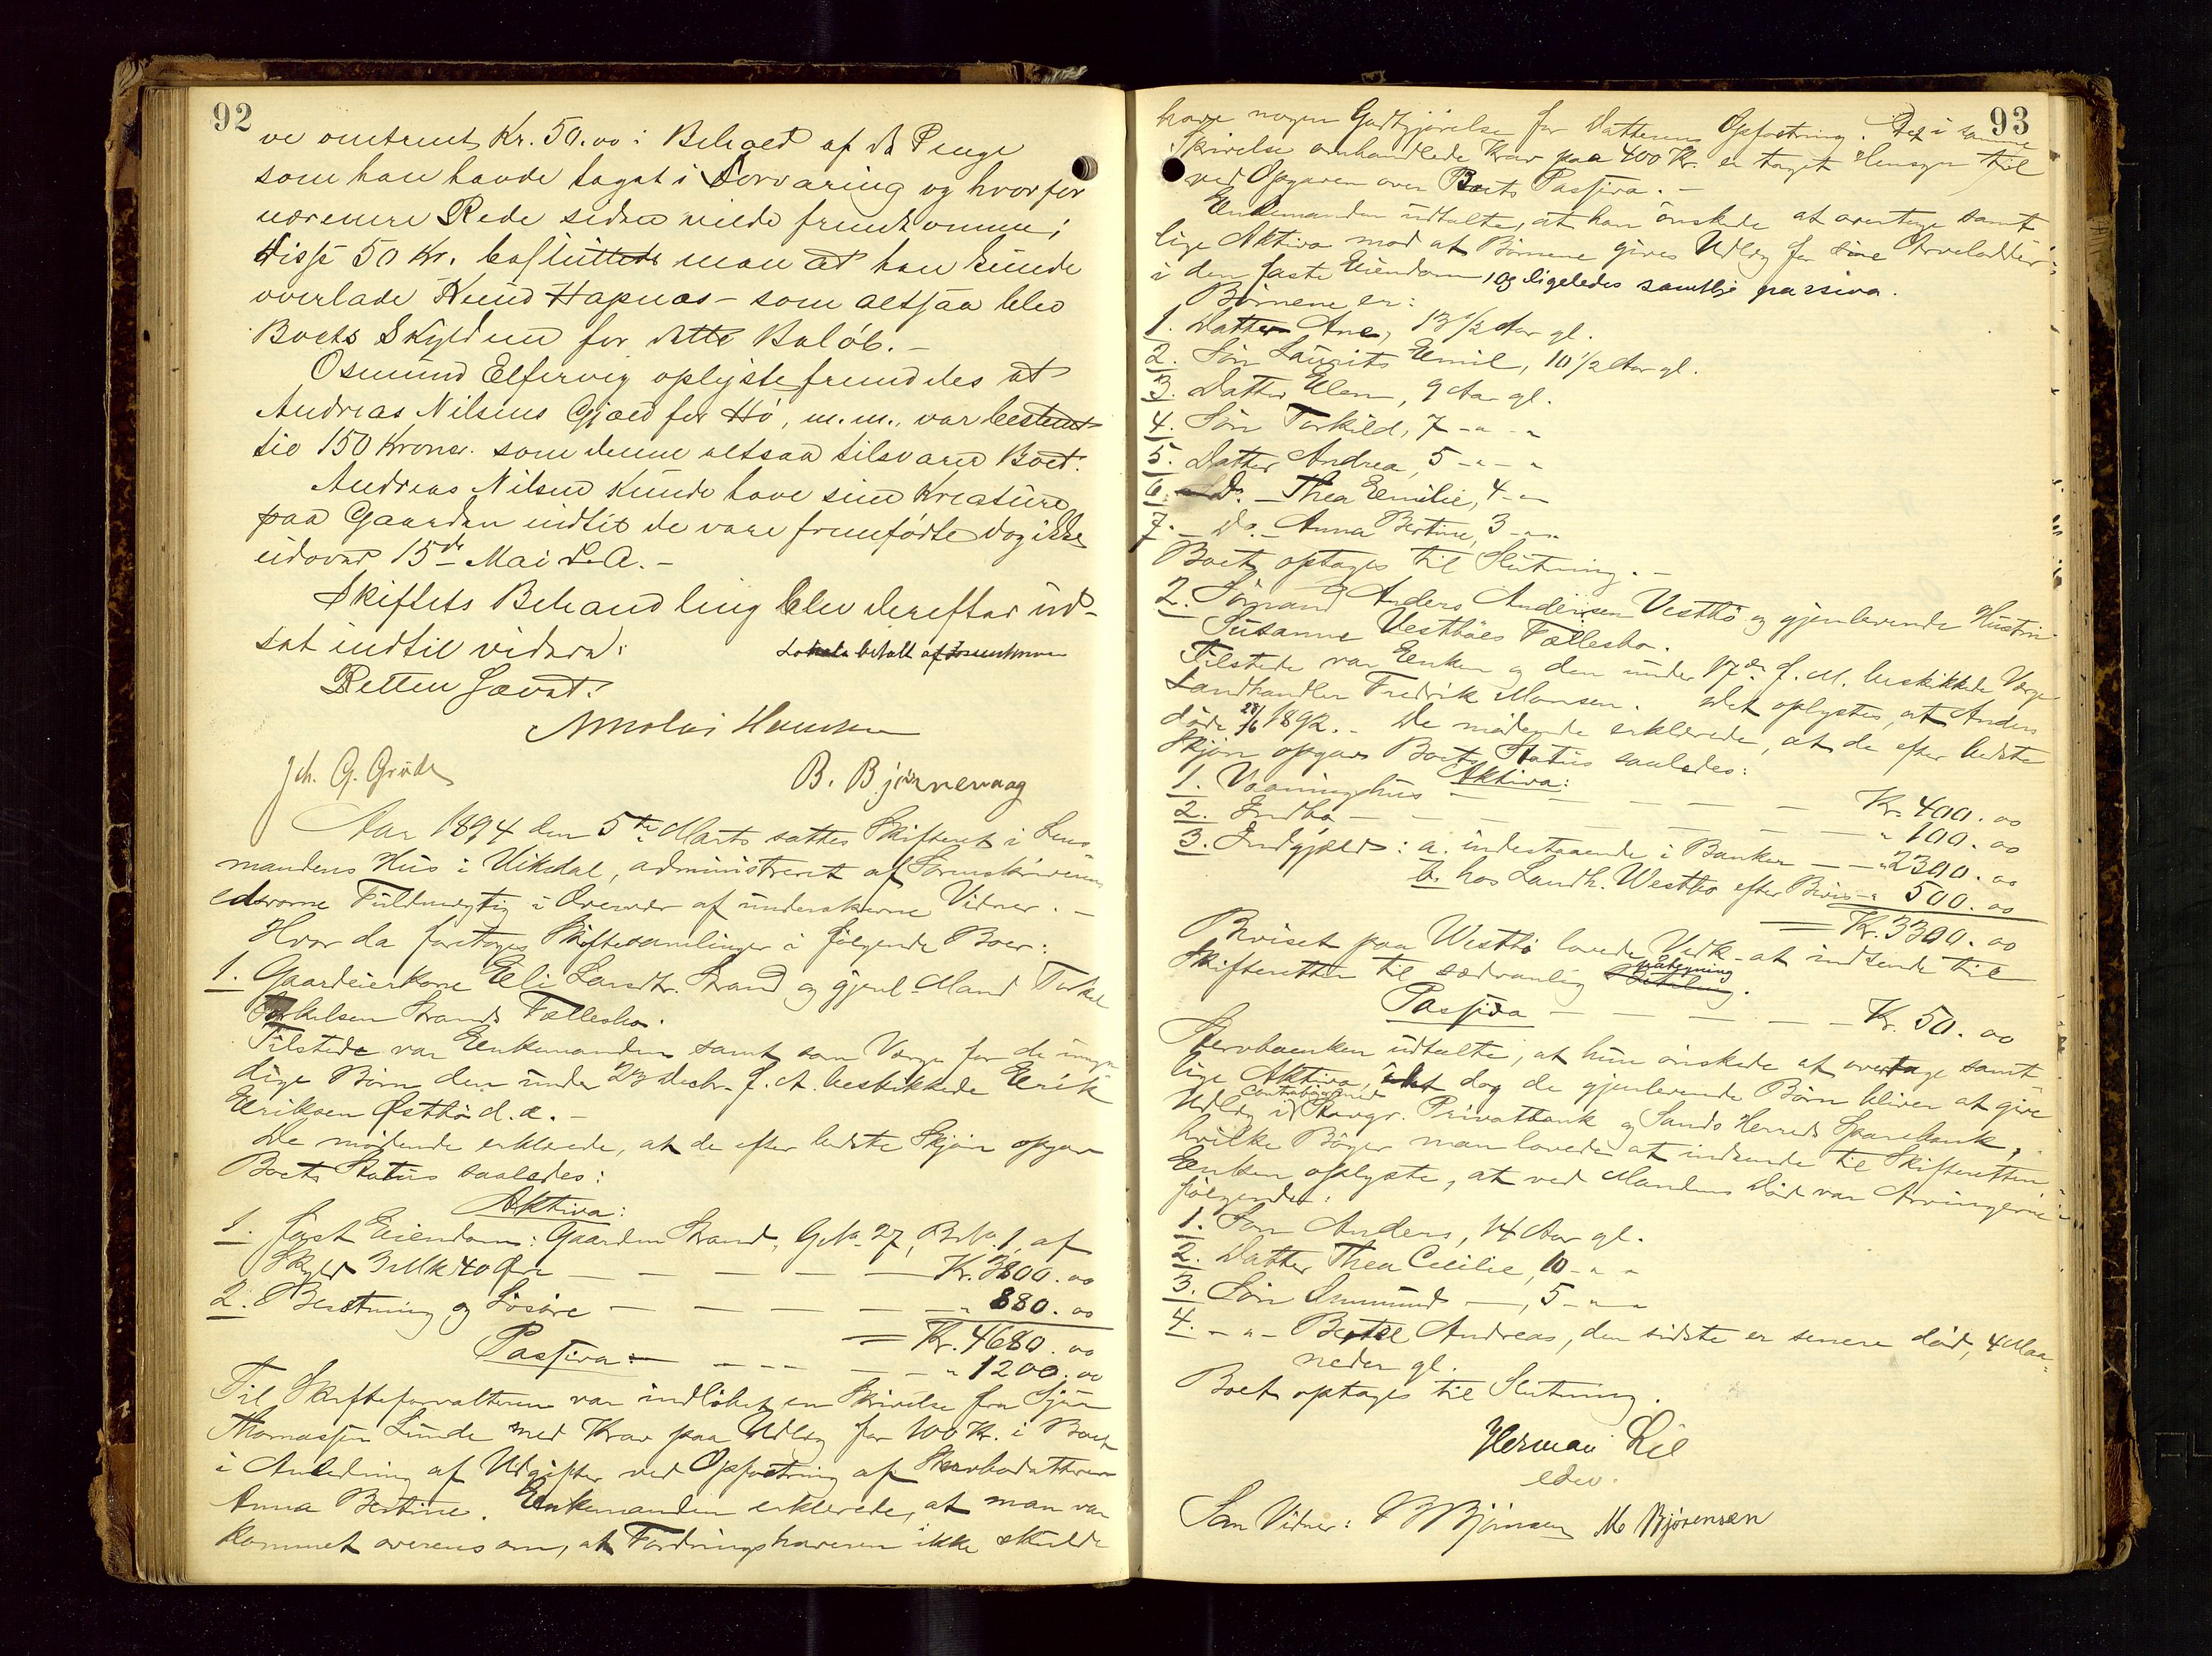 92
ve omtrent Kr. 50.00 i Behold af de Penge
som han havde taget i Forvaring og hvorfor
nærmere Rede siden vilde fremkomme;
disse 50 Kr. besluttede man at han kunde
overlade Knud Hapnes – som altsaa blev
Boets Skyldner for dette Beløb. –
Osmund Elfervig oplyste fremdeles at
Andreas Nilsens Gjæld for Hø, m.m., var bestemt
til 150 Kroner. som denne altsaa tilsvarer Boet.
Andreas Nilsen kunde have sine Kreature
paa Gaarden indtil de vare fremfødte dog ikke
udover 15de Mai d. A. –
Skiftets Behandling blev derefter ud-
sat indtil videre.
Lokale betalt af
Retten hævet.
Nikolai Hansen
Joh. G. Grøde
B. Bjørnevaag
Aar 1894 den 5te Marts sattes Skifteret i Lens-
mandens Hus i Vikedal, administreret af Sorenskriverens
edsvorne Fuldmægtig i Overvær af underskrevne Vidner. –
Hvor da foretoges Skiftesamlinger i følgende Boer:
1. Gaardeierkone Eli Larsdtr. Strand og gjenl. Mand Torkel
Torkelsen Strands Fællesbo.
Tilstede var Enkemanden samt som Værge for de umyn-
dige Børn den under 23 Decbr. f. A. beskikkede Erik
Eriksen Østbø d. æ. –
De mødende erklærede, at de efter bedste Skjøn opgav
Boets Status saaledes:
Aktiva:
1. Fast Eiendom: Gaarden Strand, G.No. 27, B.No. 1, af
Skyld 3 Mk 40 Øre — — — — — Kr. 3800.00
2. Besætning og Løsøre — — — — — " 880.00
= Kr. 4680.00
Passiva: — — — — — " 1200.00
Til Skifteforvalteren var indløbet en Skrivelse fra
Thomassen Lunde med Krav paa Udlæg for 400 Kr. i Boet
i Anledning af Udgifter ved Opfostring af Stervbodatteren
Anna Bertine. Enkemanden erklærede, at man var
kommet overens om, at Fordringshaveren ikke skulde
93
have nogen Godtgjørelse for Datterens Opfostring. Det i samme
Skrivelse omhandlede Krav paa 400 Kr. er taget Hensyn til
ved Opgaven over Boets Passiva. –
Enkemanden udtalte, at han ønskede at overtage samt-
lige Aktiva mod at Børnene gives Udlæg for sine Arvelodder
i den faste Eiendom, og ligeledes samtlige passiva.
Børnene er:
1. Datter Ane, 13 1/2 Aar gl.
2. Søn Laurits Emil, 10 1/2 Aar gl.
3. Datter Elen, 9 Aar gl.
4. Søn Torkild, 7 - " - "
5. Datter Andrea, 5 - " - "
6. - Do. - Thea Emilie, 4 - "
7. - Do. - Anna Bertine, 3 - " "
Boet optages til Slutning. –
2. Sømand Anders Andersen Vestbø og gjenlevende Hustru
Susanne Vestbøes Fællesbo.
Tilstede var Enken og den under 17de f. M. beskikkede Værge
Landhandler Fredrik Monsen. Det oplystes, at Anders
døde 28/6 1892. – De mødende erklærede, at de efter bedste
Skjøn opgav Boets Status saaledes:
Aktiva:
1. Vaaningshus — — — — — Kr. 400.00
2. Indbo — — — — — " 100.00
3. Indgjæld: a. indestaaende i Banker — — " 2300.00
b. hos Landh. Westbø efter Bevis — " 500.00
= Kr. 3300.00
Beviset paa Westbø lovede Vedk. at indsende til
Skifteretten til sædvanlig paategning.
Passiva — — — — — Kr. 50.00
Stervboenken udtalte, at hun ønskede at overtage samt-
lige Aktiva, idet dog de gjenlevende Børn bliver at give
Udlæg i Contrabøger med Stavgr. Privatbank og Sands Herreds Sparebank,
hvilke Bøger man lovede at indsende til Skifteretten.
Enken oplyste, at ved Mandens Død var Arvingerne
følgende:
1. Søn Anders, 14 Aar gl.
2. Datter Thea Cecilie, 10 - " - "
3. Søn Ommund —, 5 - " - "
4. - " - Bertel Andreas, den sidste er senere død, 4 Maa-
neder gl.
Boet optages til Slutning.
Herman Lie
edsv.
Som Vidner: Bjørnsen M. Bjørensen